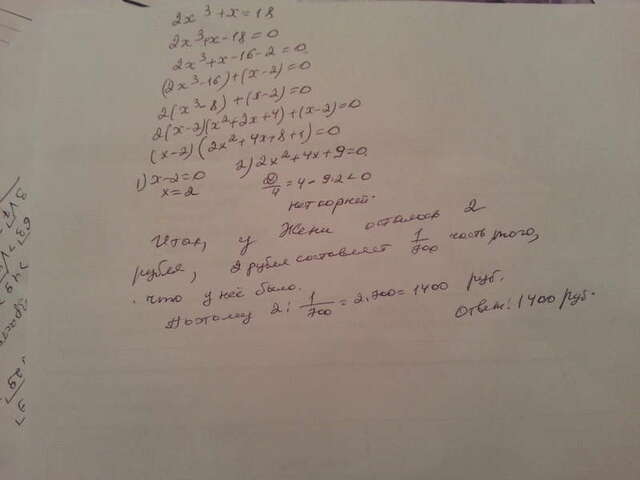 2x³+x=18
2x³+x-18=0
2x³+x-16-2=0
(2x³-16)+(x-2)=0
2(x³-8)+(x-2)=0
2(x-2)(x²+2x+4)+(x-2)=0
(x-2)(2x²+4x+8+1)=0
1) x-2=0 2) 2x²+4x+9=0
x=2 D/4=4-9·2<0
нет корней.
Итак, у Жени осталось 2
рубля, 2 рубля составляет 1/700 часть того,
что у неё было.
Поэтому 2: 1/700 = 2·700=1400 руб.
Ответ: 1400 руб.